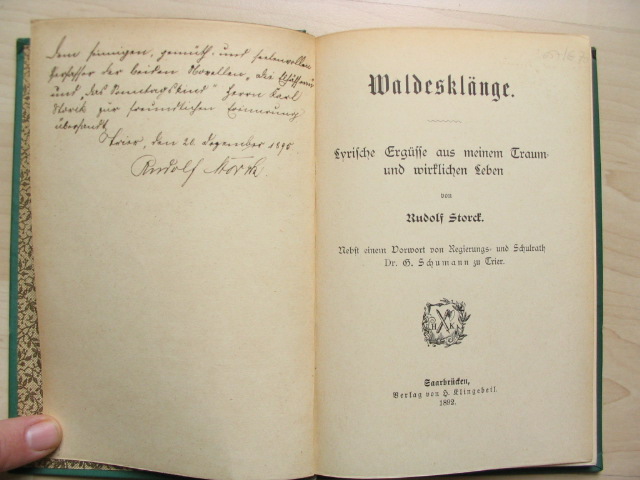 Dem sinnigen, gemüth- und seelenvollen
Verfasser der beiden Novellen, "die
und "das Sonntagskind" Herrn Karl
Storck zur freundlichen Erinnerung
übersandt
Trier, den 21. Dezember 1895
Rudolf Storck
Waldesklänge.
Lyrische Ergüsse aus meinem Traum-
und wirklichen Leben
von
Rudolf Storck.
Nebst einem Vorwort von Regierungs- und Schulrath
Dr. G. Schumann zu Trier.
Saarbrücken,
Verlag von H. Klingebeil.
1892.